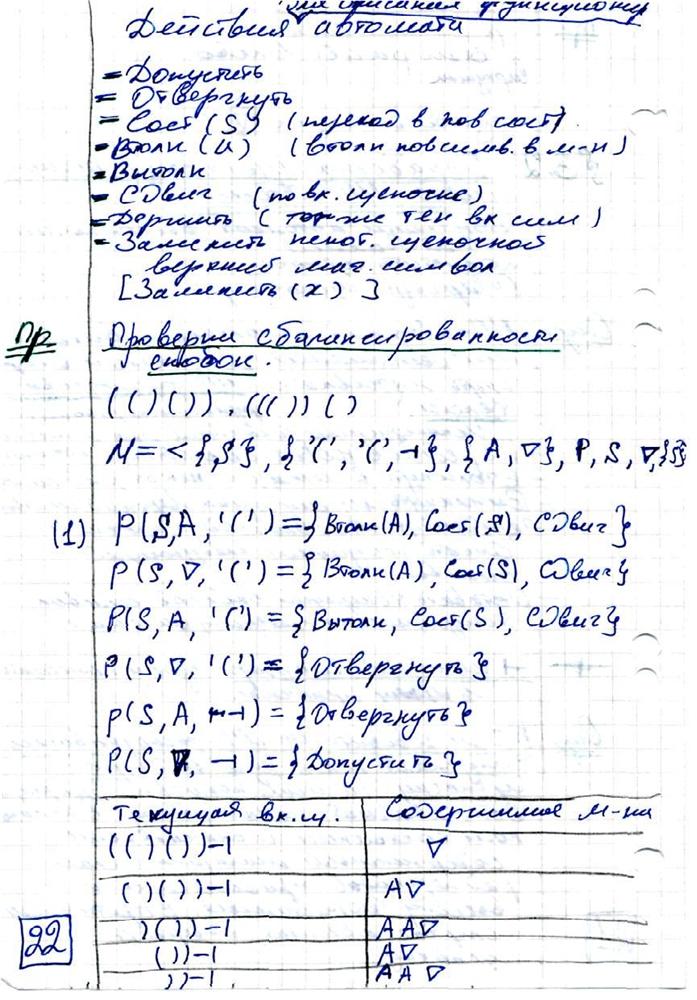 для описания функционир
Действия автомата
- Допустить
- Отвергнуть
- Сост (S) (переход в нов сост).
- Втолк (A) (втолк нов симв. в м-н)
- Вытолк
- Сдвиг (по вх. цепочке)
- Держать (тот же тек вх сим)
- Заменить некот. цепочкой
верхний маг. символ
[Заменить (x)]
Пр
Проверки сбалансированности
скобок.
(()()). ((())()
M = < {S}, {'(', '(', ⊣}, {A, ∇}, P, S, ∇, {S}
(1) P(S,A, '(') = {Втолк(A), Сост(S), Сдвиг}
P(S, ∇, '(') = {Втолк(A), Сост(S), Сдвиг}
P(S, A, '(') = {Вытолк, Сост(S), Сдвиг}
P(S, ∇, '(') = {Отвергнуть}
P(S, A, ⊣) = {Отвергнуть}
P(S, ∇, ⊣) = {Допустить}
Текущая вх.ц. Содержимое м-на
(()())⊣ ∇
()())⊣ A∇
)())⊣ AA∇
())⊣ A∇
))⊣ AA∇
22